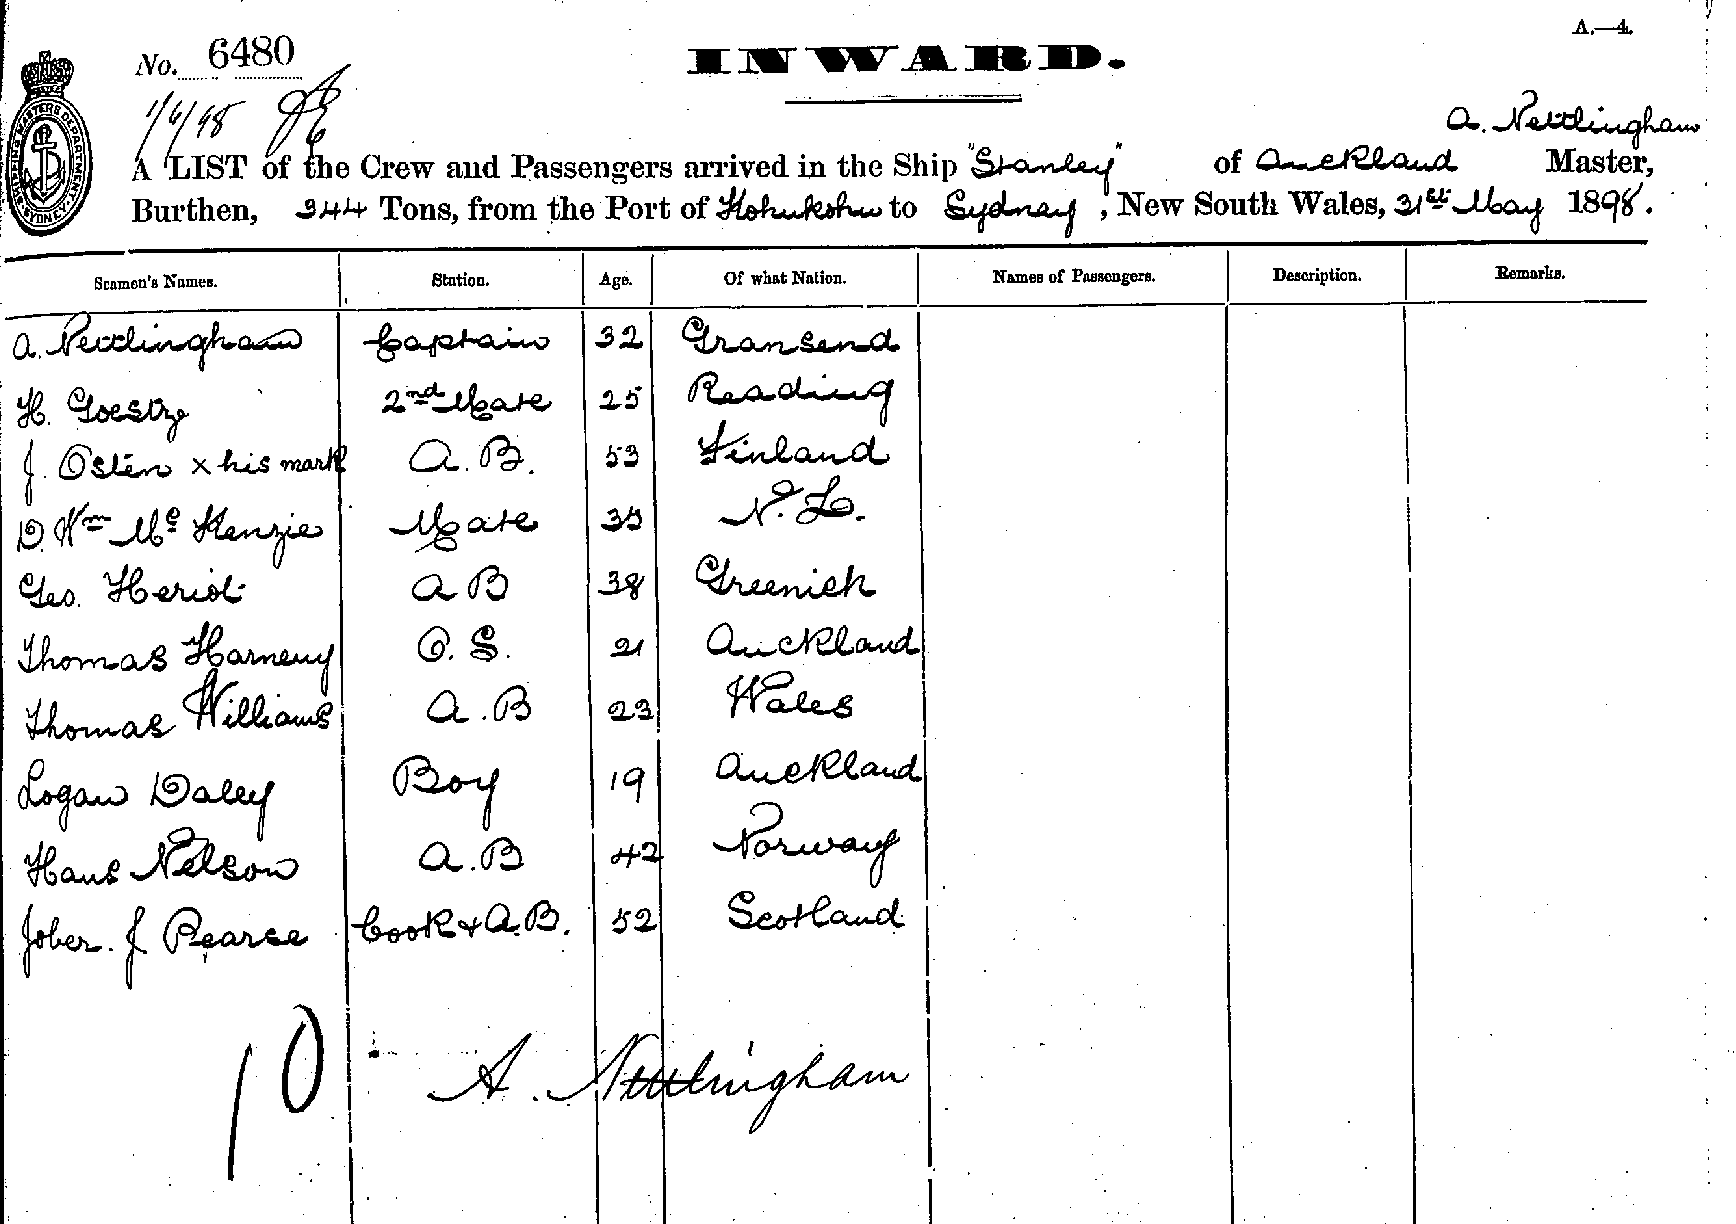 A.—4.
No. 6480
INWARD.
1/6/98
A. Nettlingham
A LIST of the Crew and Passengers arrived in the Ship "Stanley" of Auckland Master,
Burthen, 344 Tons, from the Port of Hohukohu to Sydney, New South Wales, 31st May 1898.
SHIPPING MASTERS DEPARTMENT SYDNEY
Seamen's Names. Station. Age. Of what Nation. Names of Passengers. Description. Remarks.
A. Nettlingham Captain 32 Gransend
H. Goestze 2nd Mate 25 Reading
J. Osten x his mark A.B. 53 Finland
D. Wm Mc Kenzie Mate 35 N.Z.
Geo. Heriot A B 38 Greenich
Thomas Harneny O.S. 21 Auckland
Thomas Williams A.B 23 Wales
Logan Daley Boy 19 Auckland
Hans Nelson A.B 42 Norway
Jober. J Pearse Cook & A.B. 52 Scotland
10
A. Nettlingham